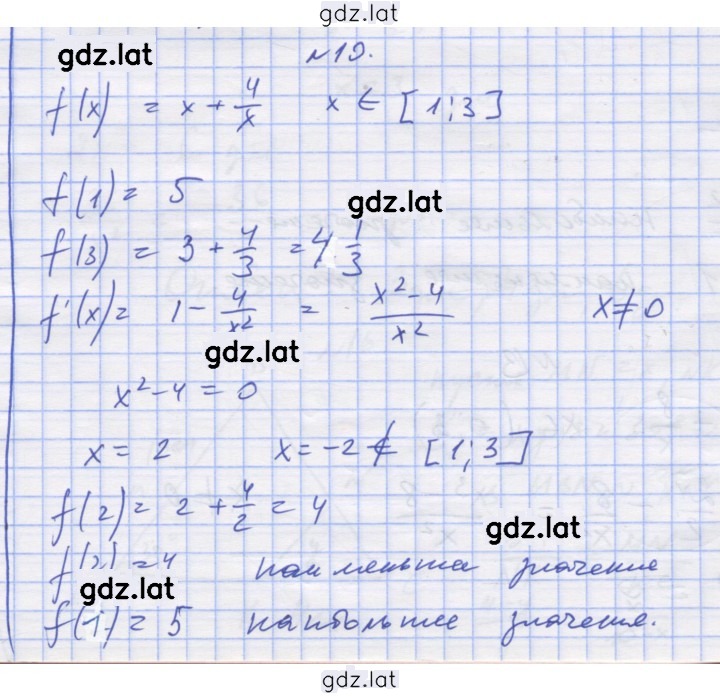 gdz.lat
gdz.lat
№10.
f(x) = x + 4/x x ∈ [1;3]
f(1) = 5
gdz.lat
f(3) = 3 + 4/3 = 4 1/3
f'(x) = 1 - 4/x² = x²-4/x² x≠0
gdz.lat
x²-4=0
x = 2 x = -2 ∉ [1;3]
f(2) = 2 + 4/2 = 4
gdz.lat
f(2) = 4 наименьшее значение
gdz.lat
f(1) = 5 наибольшее значение.
gdz.lat